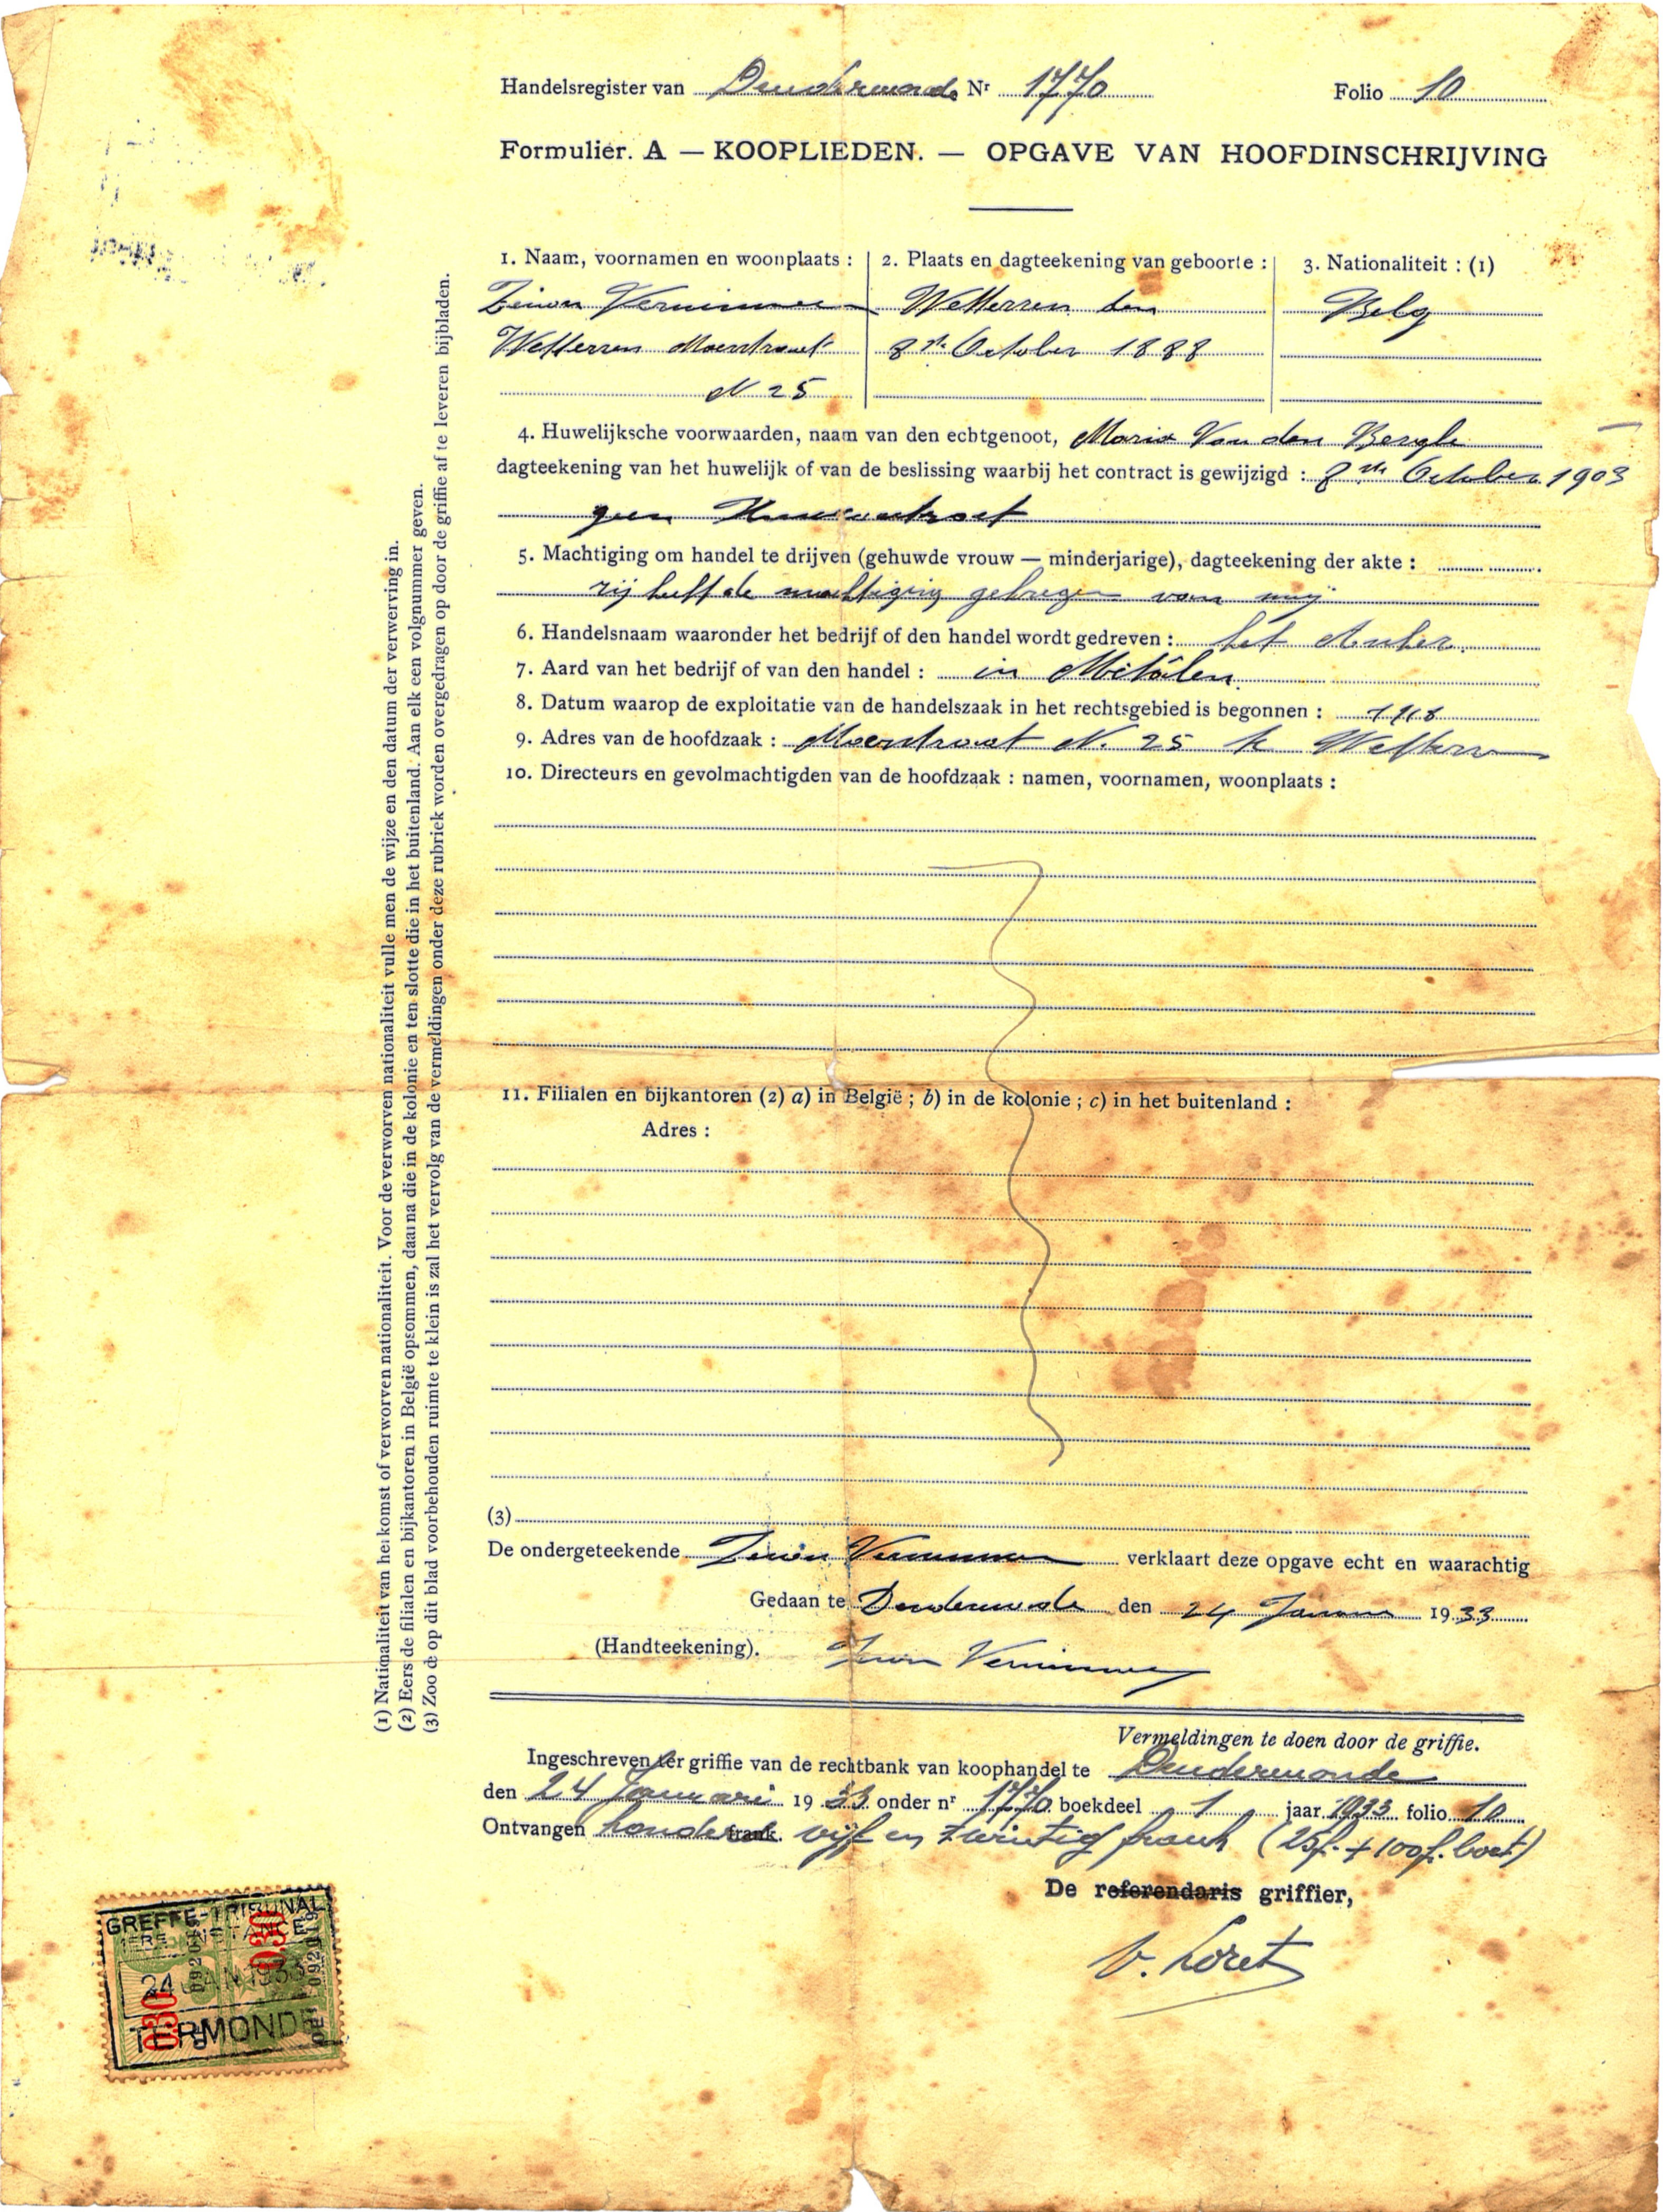 Handelsregister van Dendermonde Nr 1770 Folio 10
Formulier. A — KOOPLIEDEN. — OPGAVE VAN HOOFDINSCHRIJVING
1. Naam, voornamen en woonplaats : 2. Plaats en dagteekening van geboorte : 3. Nationaliteit : (1)
Wetteren den Belg
Wetteren Moerstraat 8ste October 1888
N 25
4. Huwelijksche voorwaarden, naam van den echtgenoot, Maria Van den Berghe
dagteekening van het huwelijk of van de beslissing waarbij het contract is gewijzigd : 8ste October 1903
geen
5. Machtiging om handel te drijven (gehuwde vrouw — minderjarige), dagteekening der akte :
zij heeft de machtiging gekregen van mij
6. Handelsnaam waaronder het bedrijf of den handel wordt gedreven : het Anker.
7. Aard van het bedrijf of van den handel : in Metalen
8. Datum waarop de exploitatie van de handelszaak in het rechtsgebied is begonnen : 1918
9. Adres van de hoofdzaak : Moerstraat N. 25 te Wetteren
10. Directeurs en gevolmachtigden van de hoofdzaak : namen, voornamen, woonplaats :
11. Filialen en bijkantoren (2) a) in België ; b) in de kolonie ; c) in het buitenland :
Adres :
(3)
De ondergeteekende verklaart deze opgave echt en waarachtig
Gedaan te Dendermonde den 24 Januari 1933
(Handteekening).
Vermeldingen te doen door de griffie.
Ingeschreven ter griffie van de rechtbank van koophandel te Dendermonde
den 24 Januari 1933 onder nr 1770 boekdeel 1 jaar 1933 folio 10
Ontvangen honderd frank. vijf en twintig frank (25f. + 100f. boet)
De referendaris griffier,
V. Loret
(1) Nationaliteit van herkomst of verworven nationaliteit. Voor de verworven nationaliteit vulle men de wijze en den datum der verwerving in.
(2) Eerst de filialen en bijkantoren in België opsommen, daarna die in de kolonie en ten slotte die in het buitenland. Aan elk een volgnummer geven.
(3) Zoo de op dit blad voorbehouden ruimte te klein is zal het vervolg van de vermeldingen onder deze rubriek worden overgedragen op door de griffie af te leveren bijbladen.
GREFFE-TRIBUNAL
1ERE INSTANCE
0.30
24 JAN 1933
0.30
TERMONDE